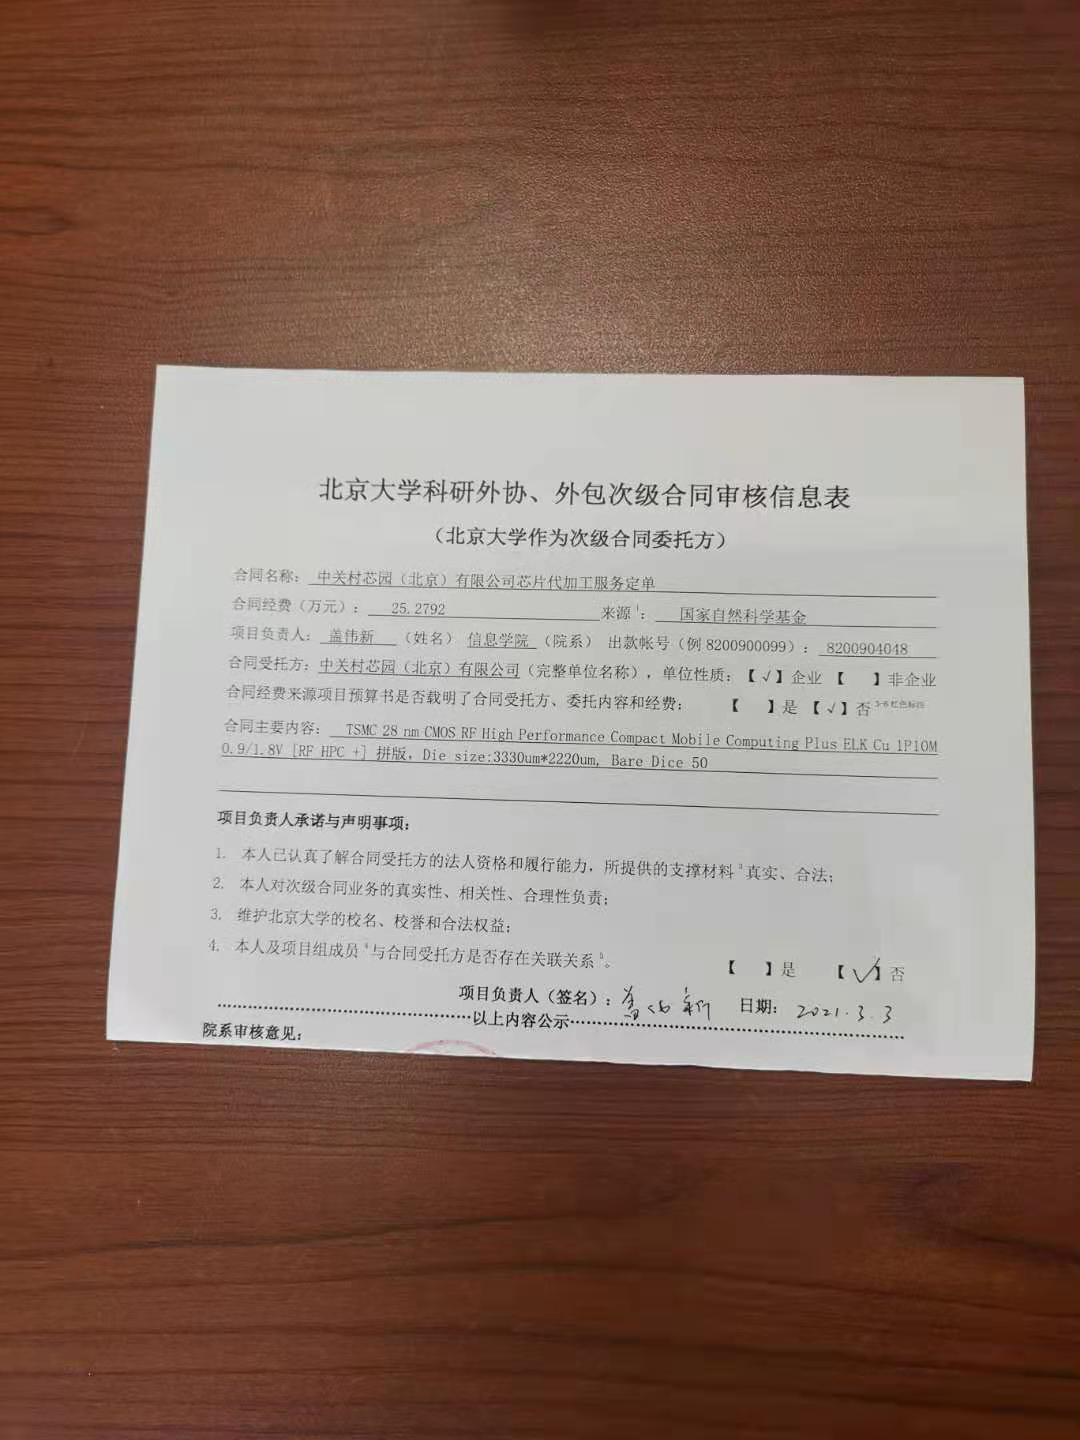 北京大学科研外协、外包次级合同审核信息表
（北京大学作为次级合同委托方）
合同名称： 中关村芯园（北京）有限公司芯片代加工服务定单
合同经费（万元）： 25.2792 来源¹： 国家自然科学基金
项目负责人： 盖伟新 （姓名） 信息学院 （院系） 出款帐号（例 8200900099）： 8200904048
合同受托方：中关村芯园（北京）有限公司（完整单位名称），单位性质：【√】企业 【 】非企业
合同经费来源项目预算书是否载明了合同受托方、委托内容和经费： 【 】是 【√】否
合同主要内容： TSMC 28 nm CMOS RF High Performance Compact Mobile Computing Plus ELK Cu 1P10M
0.9/1.8V [RF HPC +] 拼版，Die size:3330um*2220um, Bare Dice 50
项目负责人承诺与声明事项：
1. 本人已认真了解合同受托方的法人资格和履行能力，所提供的支撑材料³真实、合法；
2. 本人对次级合同业务的真实性、相关性、合理性负责；
3. 维护北京大学的校名、校誉和合法权益；
4. 本人及项目组成员⁴与合同受托方是否存在关联关系⁵。 【 】是 【√】否
项目负责人（签名）：盖伟新 日期： 2021.3.3
以上内容公示
院系审核意见：